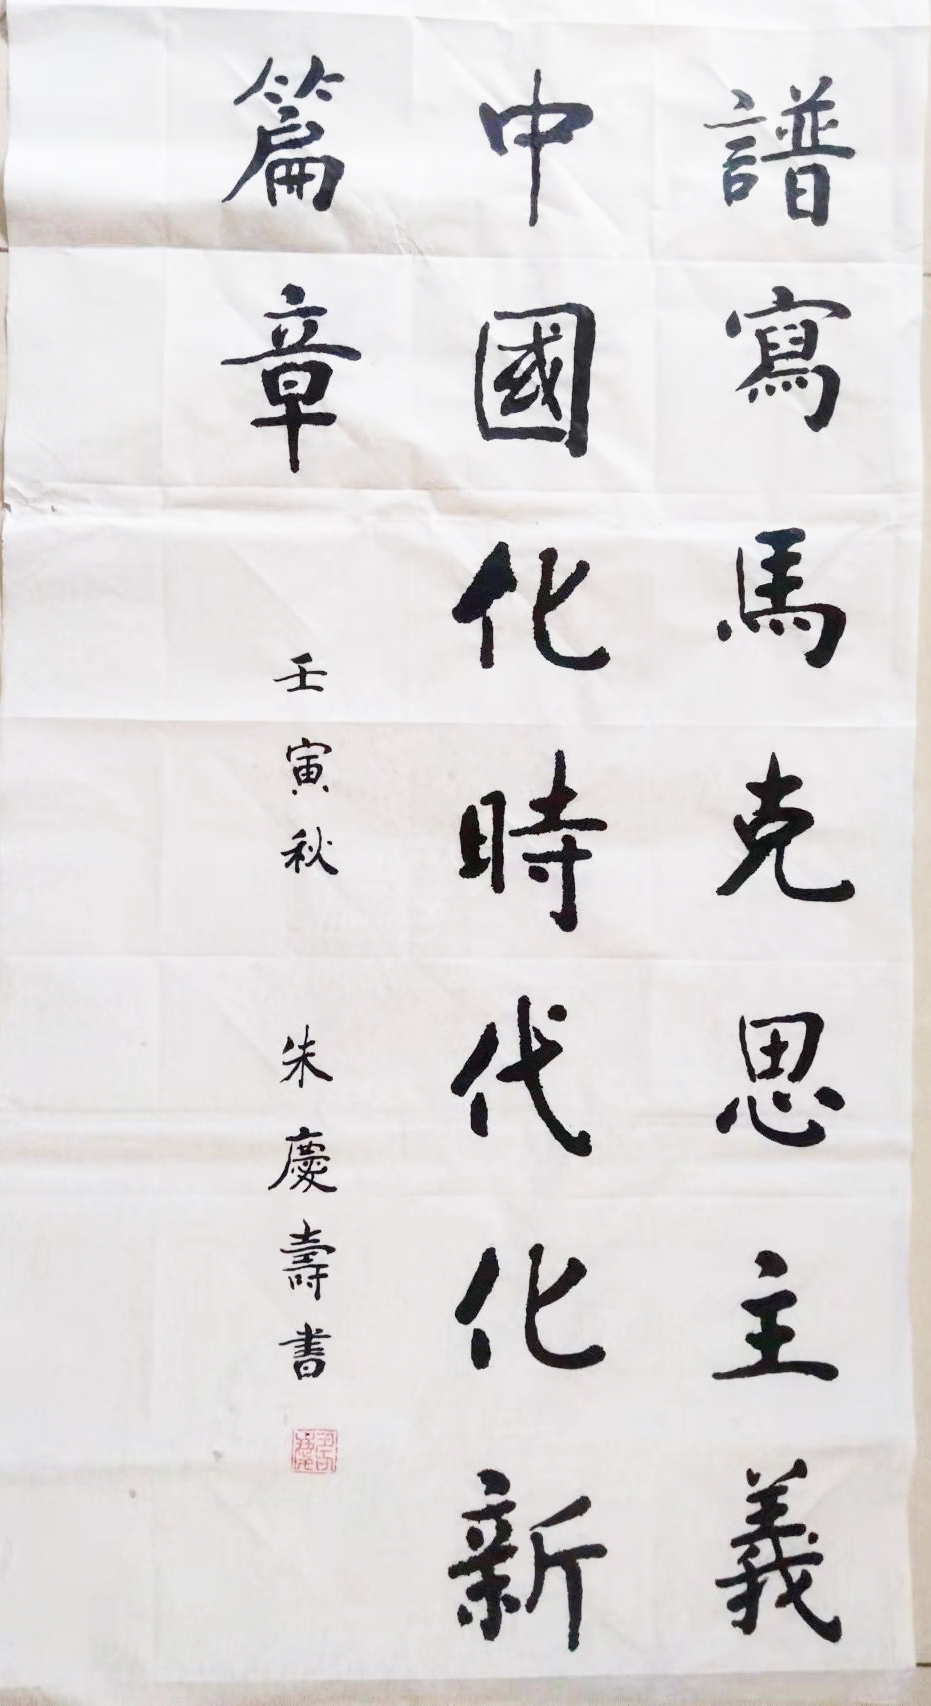 譜寫馬克思主義
中國化時代化新
篇章
壬寅秋 朱慶壽書